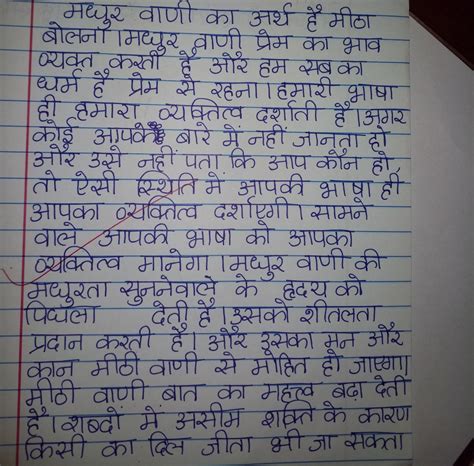 मधुर वाणी का अर्थ है मीठा
बोलना।मधुर वाणी प्रेम का भाव
व्यक्त करती है और हम सब का
धर्म है प्रेम से रहना।हमारी भाषा
ही हमारा व्यक्तित्व दर्शाती है।अगर
कोई आपके बारे में नहीं जानता हो
और उसे नहीं पता कि आप कौन हो,
तो ऐसी स्थिति में आपकी भाषा ही
आपका व्यक्तित्व दर्शाएगी। सामने
वाले आपकी भाषा को आपका
व्यक्तित्व मानेगा।मधुर वाणी की
मधुरता सुननेवाले के हृदय को
पिघला देती है।उसको शीतलता
प्रदान करती है। और उसका मन और
कान मीठी वाणी से मोहित हो जाएगा।
मीठी वाणी बात का महत्व बढ़ा देती
है।शब्दों में असीम शक्ति के कारण
किसी का दिल जीता भी जा सकता